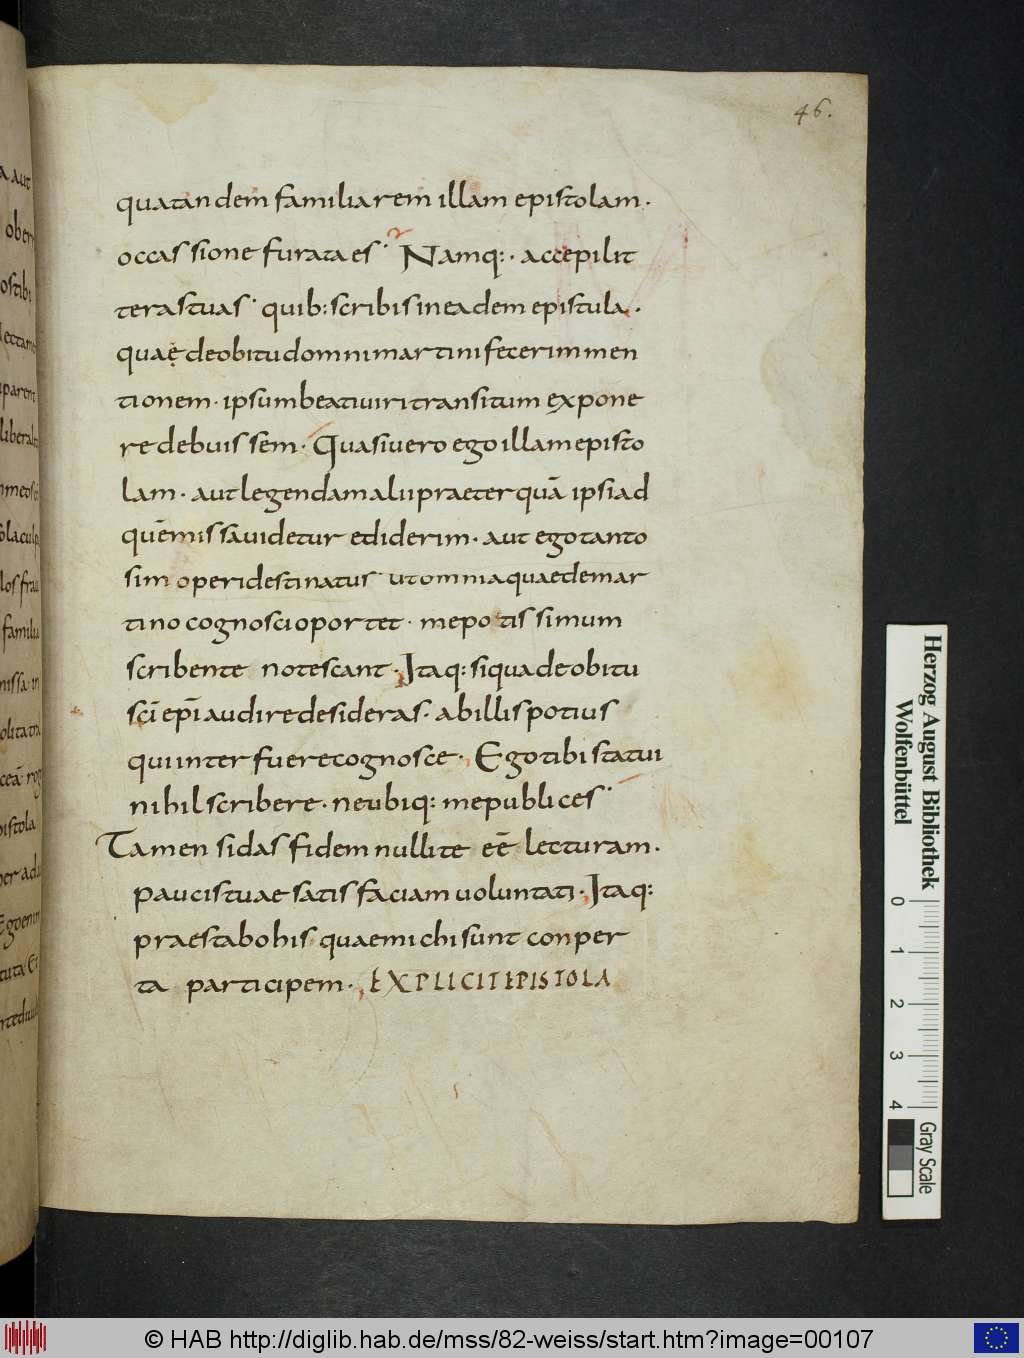 46.
quatandem familiarem illam epistolam·
occassione furata es· Namq:· accepi lit
teras tuas· quib: scribis in eadem epistula·
quaę de obitu domni martini fecerim men
tionem· ipsum beati uiri transitum expone
re debuissem· Quasi uero ego illam episto
lam· aut legendam alii praeter quā ipsi ad
quē missa uidetur ediderim· aut ego tanto
sim operi destinatus ut omnia quae de mar
tino cognosci oportet· me potissimum
scribente notescant· Itaq: si qua de obitu
sc̄i ep̄i audire desideras· ab illis potius
qui interfuere cognosce· Ego tibi statui
nihil scribere· ne ubiq: me publices·
Tamen si das fidem nulli te eē lecturam·
paucis tuae satisfaciam uoluntati· Itaq:
praestabo his quae michi sunt conper
ta participem· EXPLICIT EPISTOLA
Herzog August Bibliothek
Wolfenbüttel
0 1 2 3 4
Gray Scale
© HAB http://diglib.hab.de/mss/82-weiss/start.htm?image=00107